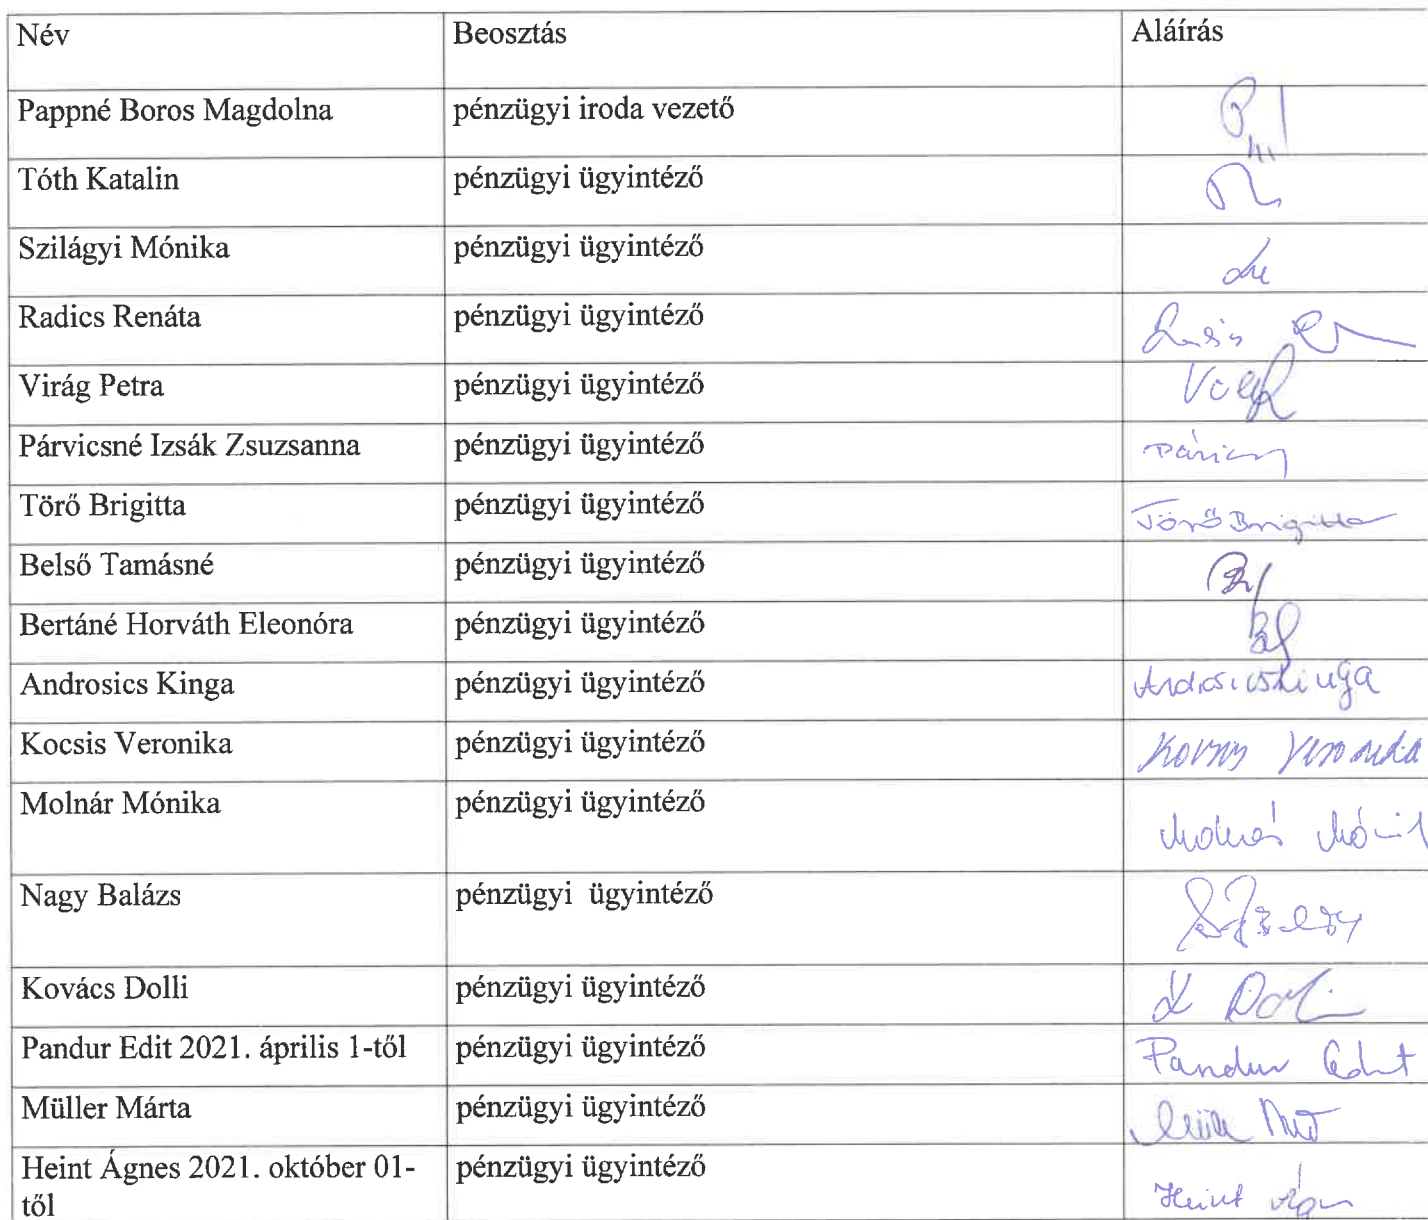 Név Beosztás Aláírás
Pappné Boros Magdolna pénzügyi iroda vezető
Tóth Katalin pénzügyi ügyintéző
Szilágyi Mónika pénzügyi ügyintéző
Radics Renáta pénzügyi ügyintéző
Virág Petra pénzügyi ügyintéző
Párvicsné Izsák Zsuzsanna pénzügyi ügyintéző
Törő Brigitta pénzügyi ügyintéző Törő Brigitta
Belső Tamásné pénzügyi ügyintéző
Bertáné Horváth Eleonóra pénzügyi ügyintéző
Androsics Kinga pénzügyi ügyintéző Androsics Kinga
Kocsis Veronika pénzügyi ügyintéző Kocsis Veronika
Molnár Mónika pénzügyi ügyintéző Molnár Mónik
Nagy Balázs pénzügyi  ügyintéző
Kovács Dolli pénzügyi ügyintéző K Dolli
Pandur Edit 2021. április 1-től pénzügyi ügyintéző Pandur Edit
Müller Márta pénzügyi ügyintéző
Heint Ágnes 2021. október 01- pénzügyi ügyintéző Heint Ágn
től